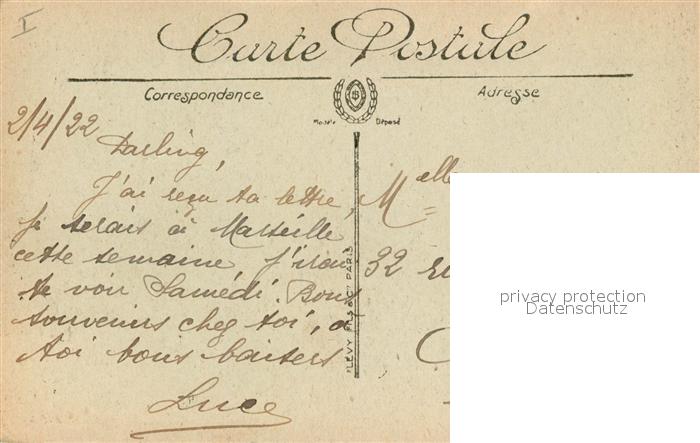 I
Carte Postale
Correspondance
Adresse
Modèle Déposé
2/4/22
Darling,
J'ai reçu ta lettre,
je serais à Marseille
cette semaine j'irai
te voir Samedi. Bons
souvenirs chez toi, à
toi bons baisers
Luce
LÉVY FILS & Cie PARIS
Melle
32
privacy protection
Datenschutz